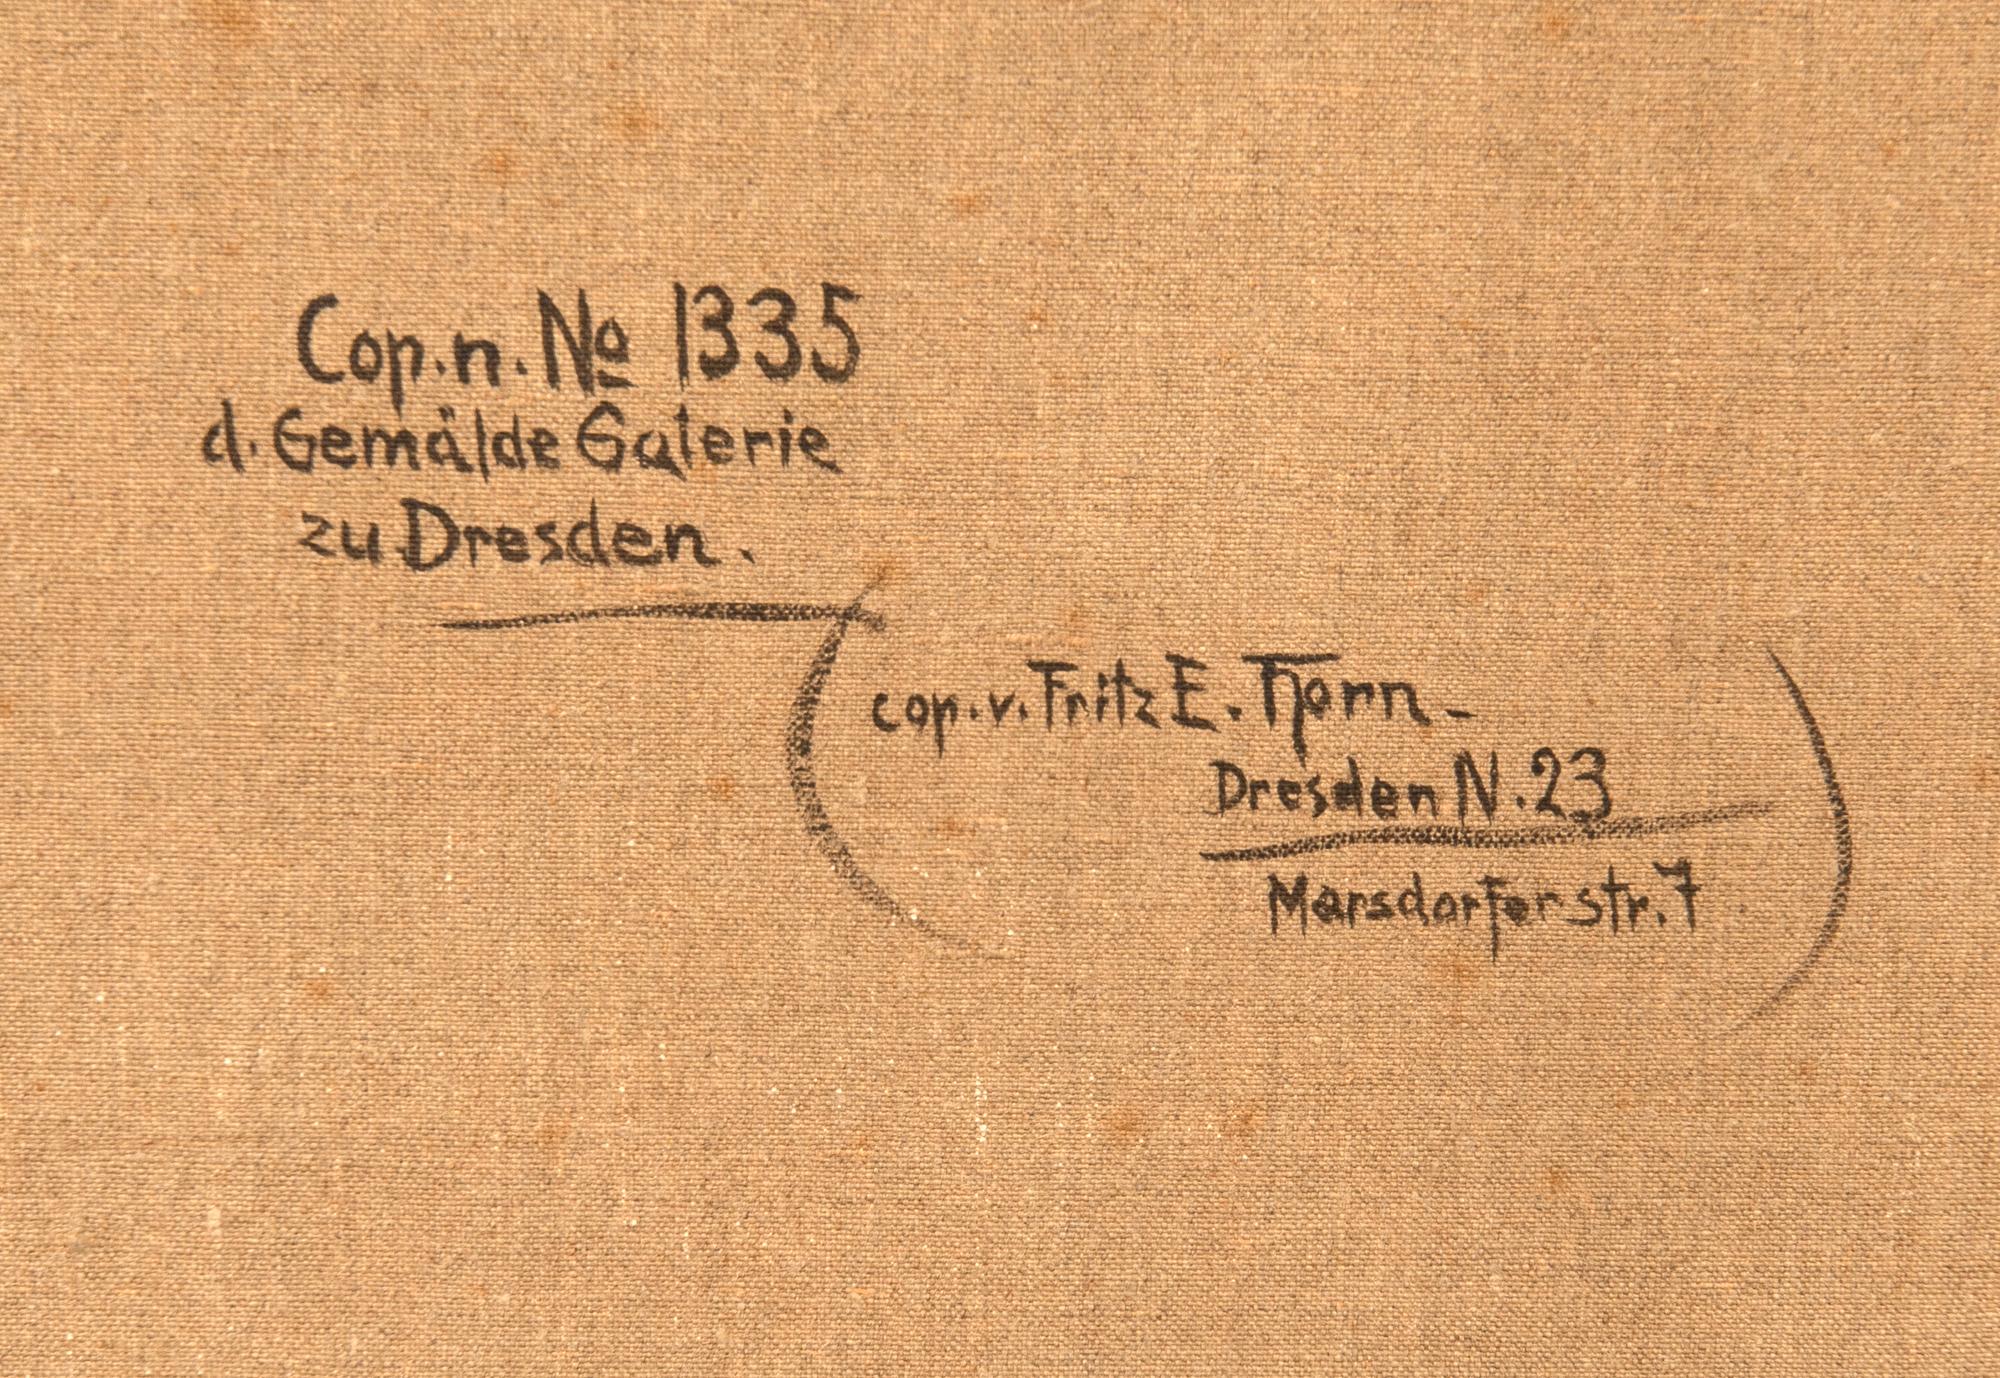 Cop. n. No 1335
d. Gemälde Galerie
zu Dresden.
(cop. v. Fritz E.
Dresden N. 23
Marsdorferstr. 7)